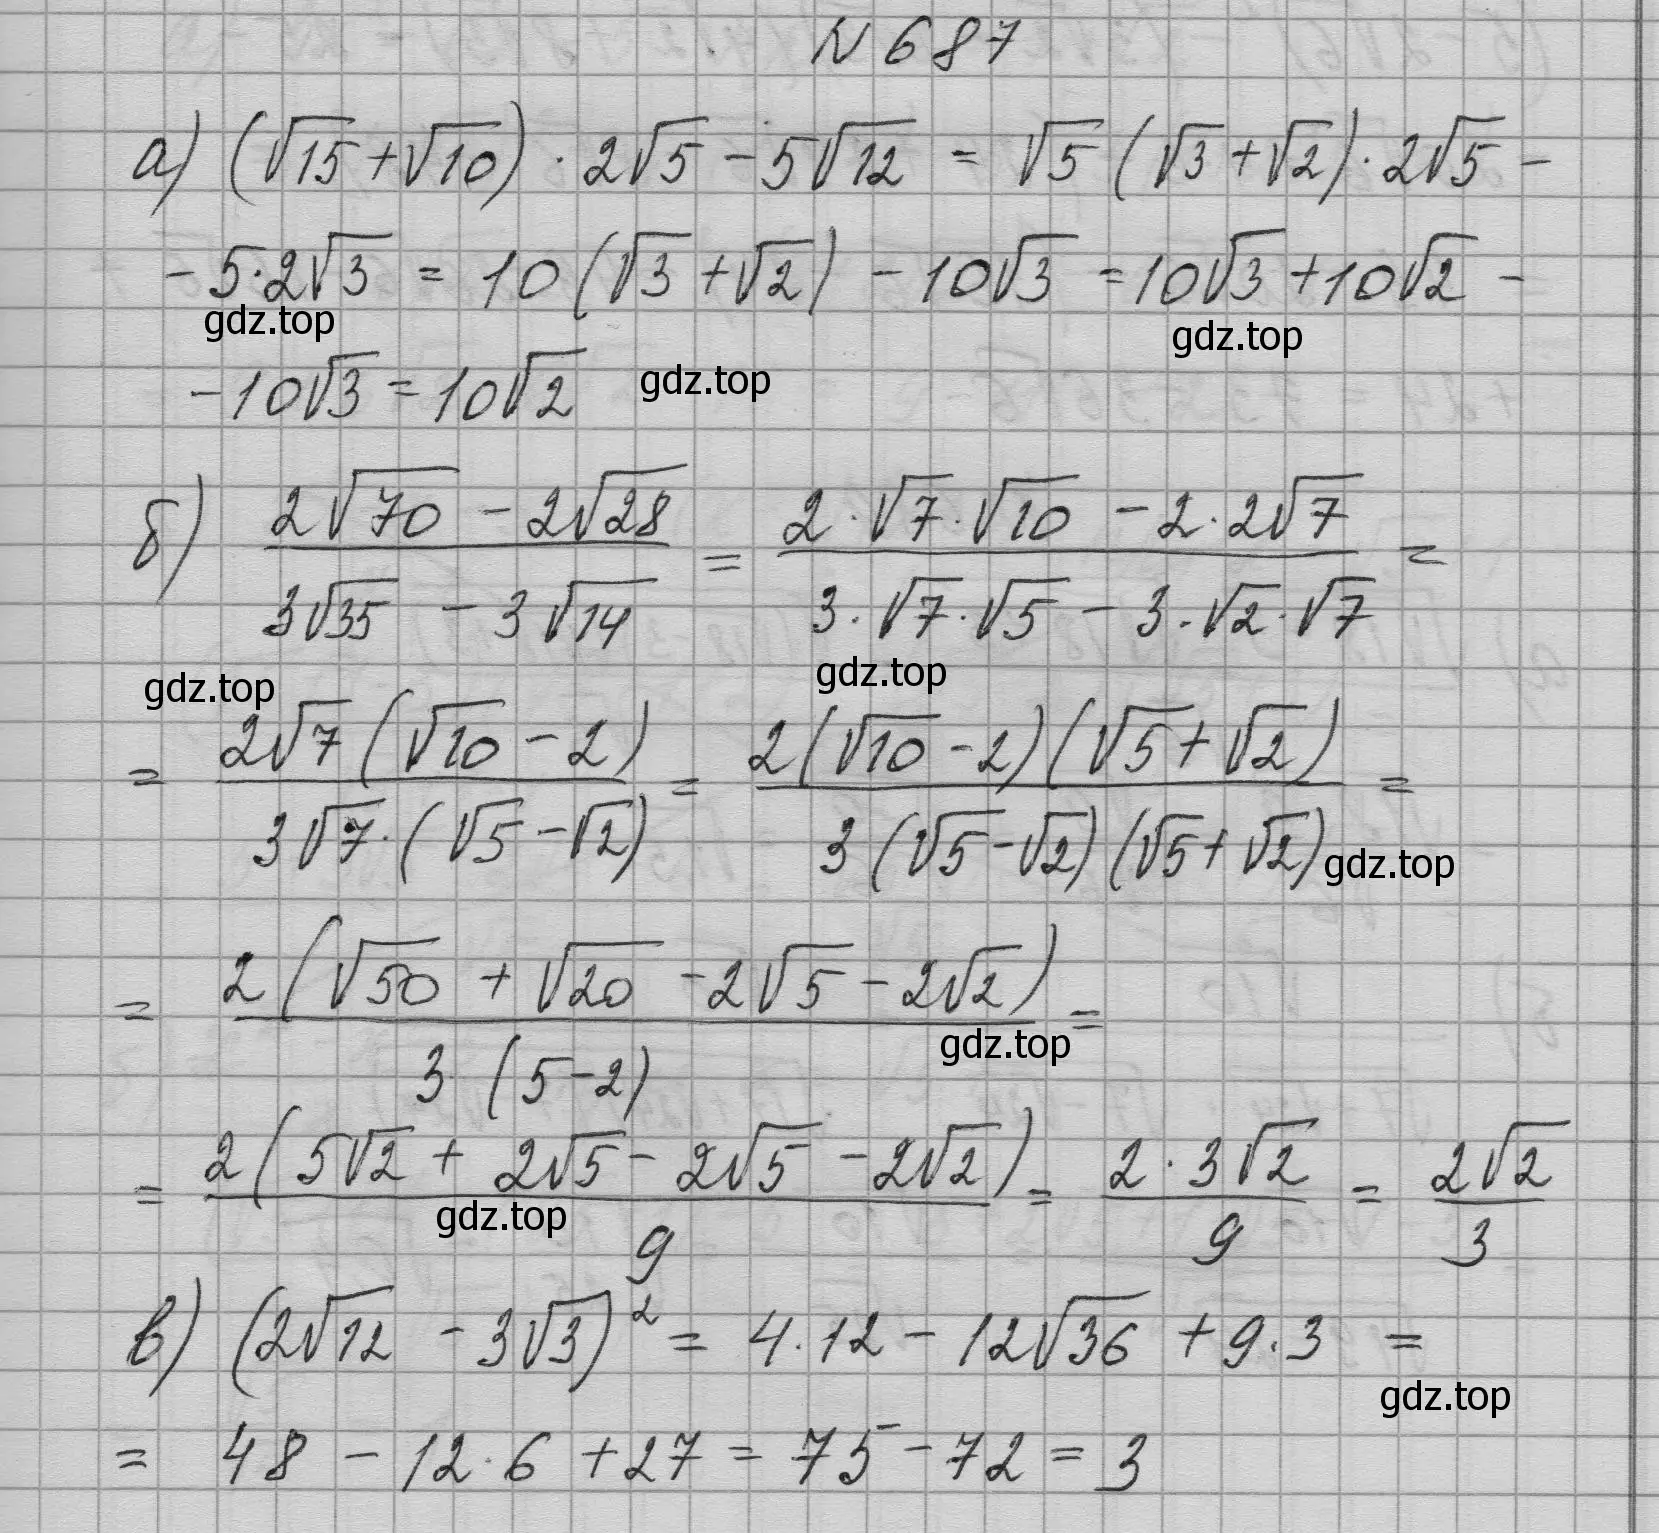 N 687
а) (√15 + √10) · 2√5 - 5√12 = √5 (√3 + √2) · 2√5 -
- 5·2√3 = 10 (√3 + √2) - 10√3 = 10√3 + 10√2 -
gdz.top gdz.top
- 10√3 = 10√2 gdz.top
б) (2√70 - 2√28)/(3√35 - 3√14) = (2·√7·√10 - 2·2√7)/(3·√7·√5 - 3·√2·√7) =
gdz.top gdz.top
= (2√7 (√10 - 2))/(3√7·(√5 - √2)) = (2(√10 - 2)(√5 + √2))/(3(√5 - √2)(√5 + √2)) =
gdz.top
= (2(√50 + √20 - 2√5 - 2√2))/(3·(5 - 2)) =
gdz.top
= (2(5√2 + 2√5 - 2√5 - 2√2))/9 = (2·3√2)/9 = (2√2)/3
gdz.top
в) (2√12 - 3√3)² = 4·12 - 12√36 + 9·3 =
gdz.top
= 48 - 12·6 + 27 = 75 - 72 = 3